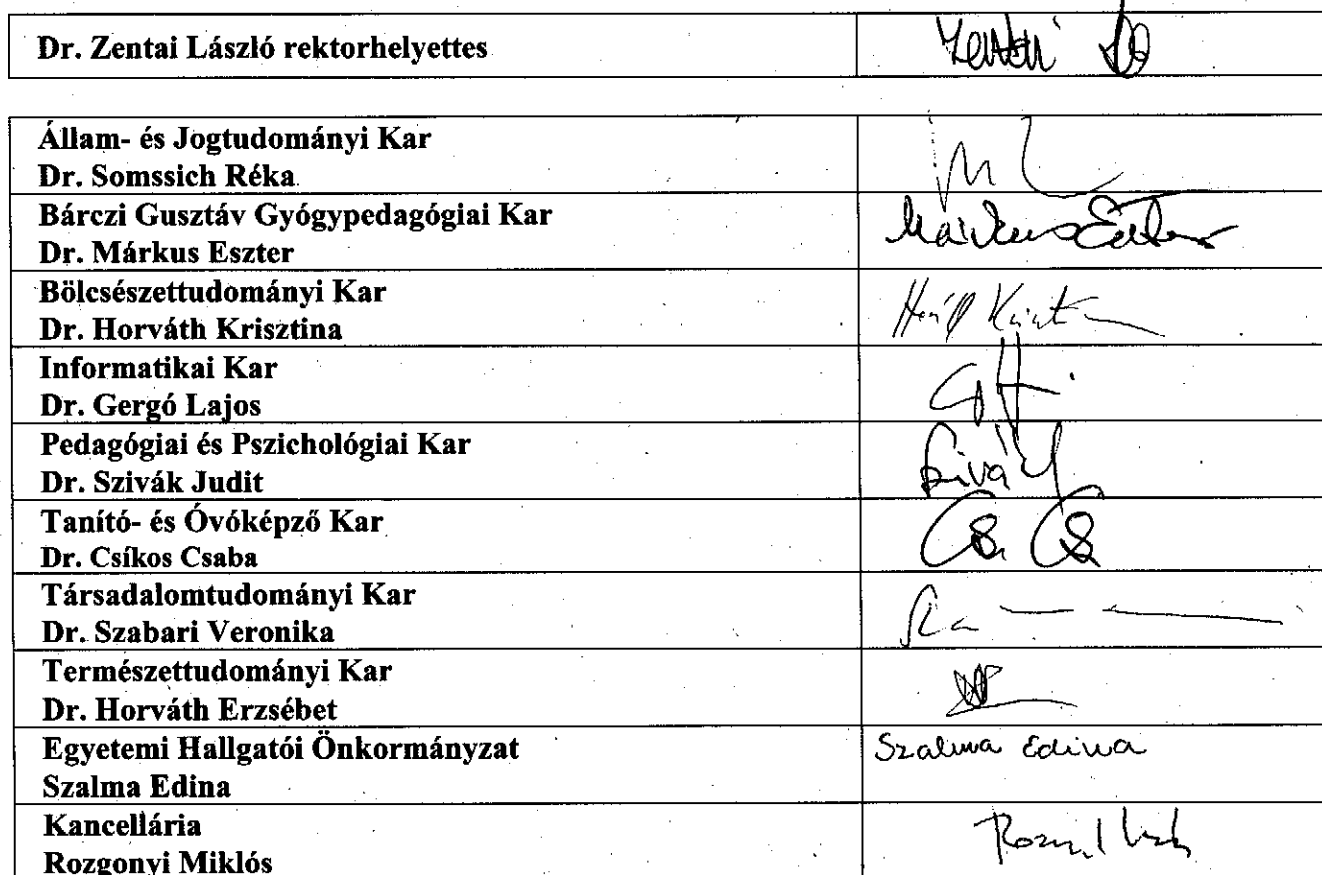 Dr. Zentai László rektorhelyettes
Állam- és Jogtudományi Kar
Dr. Somssich Réka
Bárczi Gusztáv Gyógypedagógiai Kar
Dr. Márkus Eszter
Bölcsészettudományi Kar
Dr. Horváth Krisztina
Informatikai Kar
Dr. Gergó Lajos
Pedagógiai és Pszichológiai Kar
Dr. Szivák Judit
Tanító- és Óvóképző Kar
Dr. Csíkos Csaba
Társadalomtudományi Kar
Dr. Szabari Veronika
Természettudományi Kar
Dr. Horváth Erzsébet
Egyetemi Hallgatói Önkormányzat
Szalma Edina
Szalma Edina
Kancellária
Rozgonyi Miklós